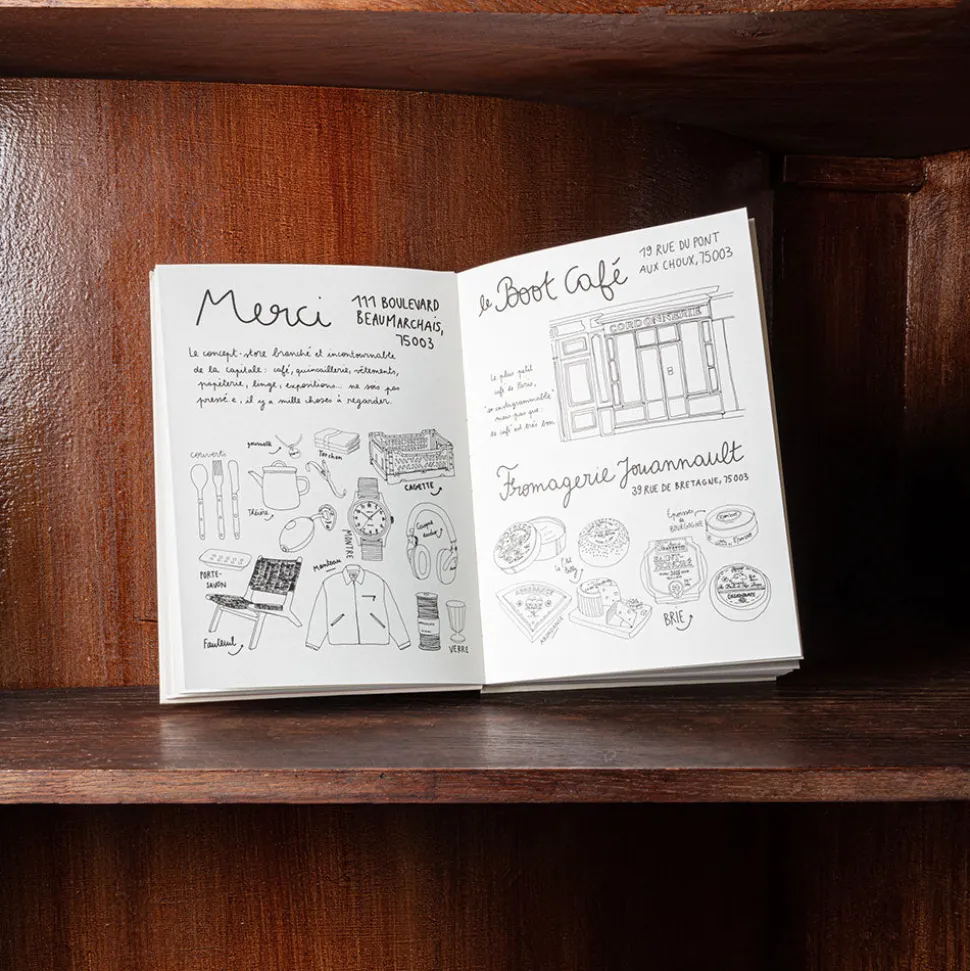 Merci
111 BOULEVARD
BEAUMARCHAIS,
75003
Le concept-store branché et incontournable
de la capitale : café, quincaillerie, vêtements,
papèterie, linge, expositions... ne sois pas
pressé·e, il y a mille choses à regarder.
couverts
Torchon
CAGETTE
Théière
MONTRE
PORTE-
SAVON
Manteau
Fauteuil
VERRE
le Boot Café
19 RUE DU PONT
AUX CHOUX, 75003
CORDONNERIE
Le plus petit
café de Paris,
"instagrammable"
mais pas que :
le café est très bon
Fromagerie Jouannault
39 RUE DE BRETAGNE, 75003
Époisses
de
BOURGOGNE
SAINT
BRIE